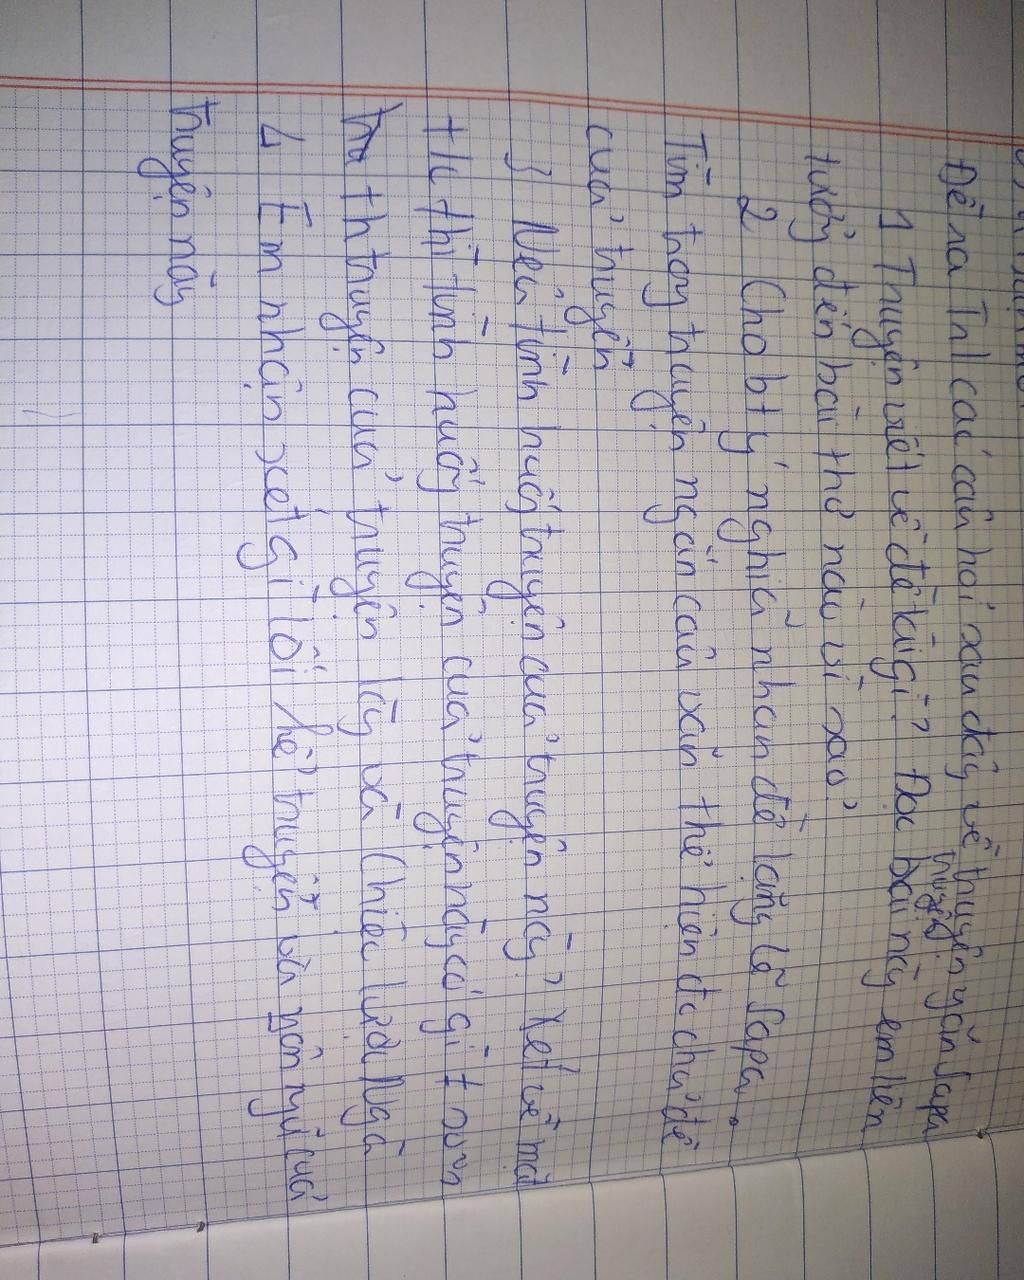 Để ra Tnl các câu hỏi sau đây về truyện ngắn Sapa
1 Truyện viết về đề tài gì? Đọc bài này em liên
truyện
tưởng đến bài thơ nào vì sao?
2 Cho bt ý nghiã nhan đề lặng lẽ Sapa.
Tìm trong truyện ngắn câu văn thể hiện đc chủ đề
của truyện
3 Nêu tình huống truyện của truyện này? Xét về mặt
thì tình huống truyện của truyện này có gì
th truyện của truyện làng và Chiếc lược Ngà
4 Em nhận xét gì lối kể truyện và ngôn ngữ của
truyện này